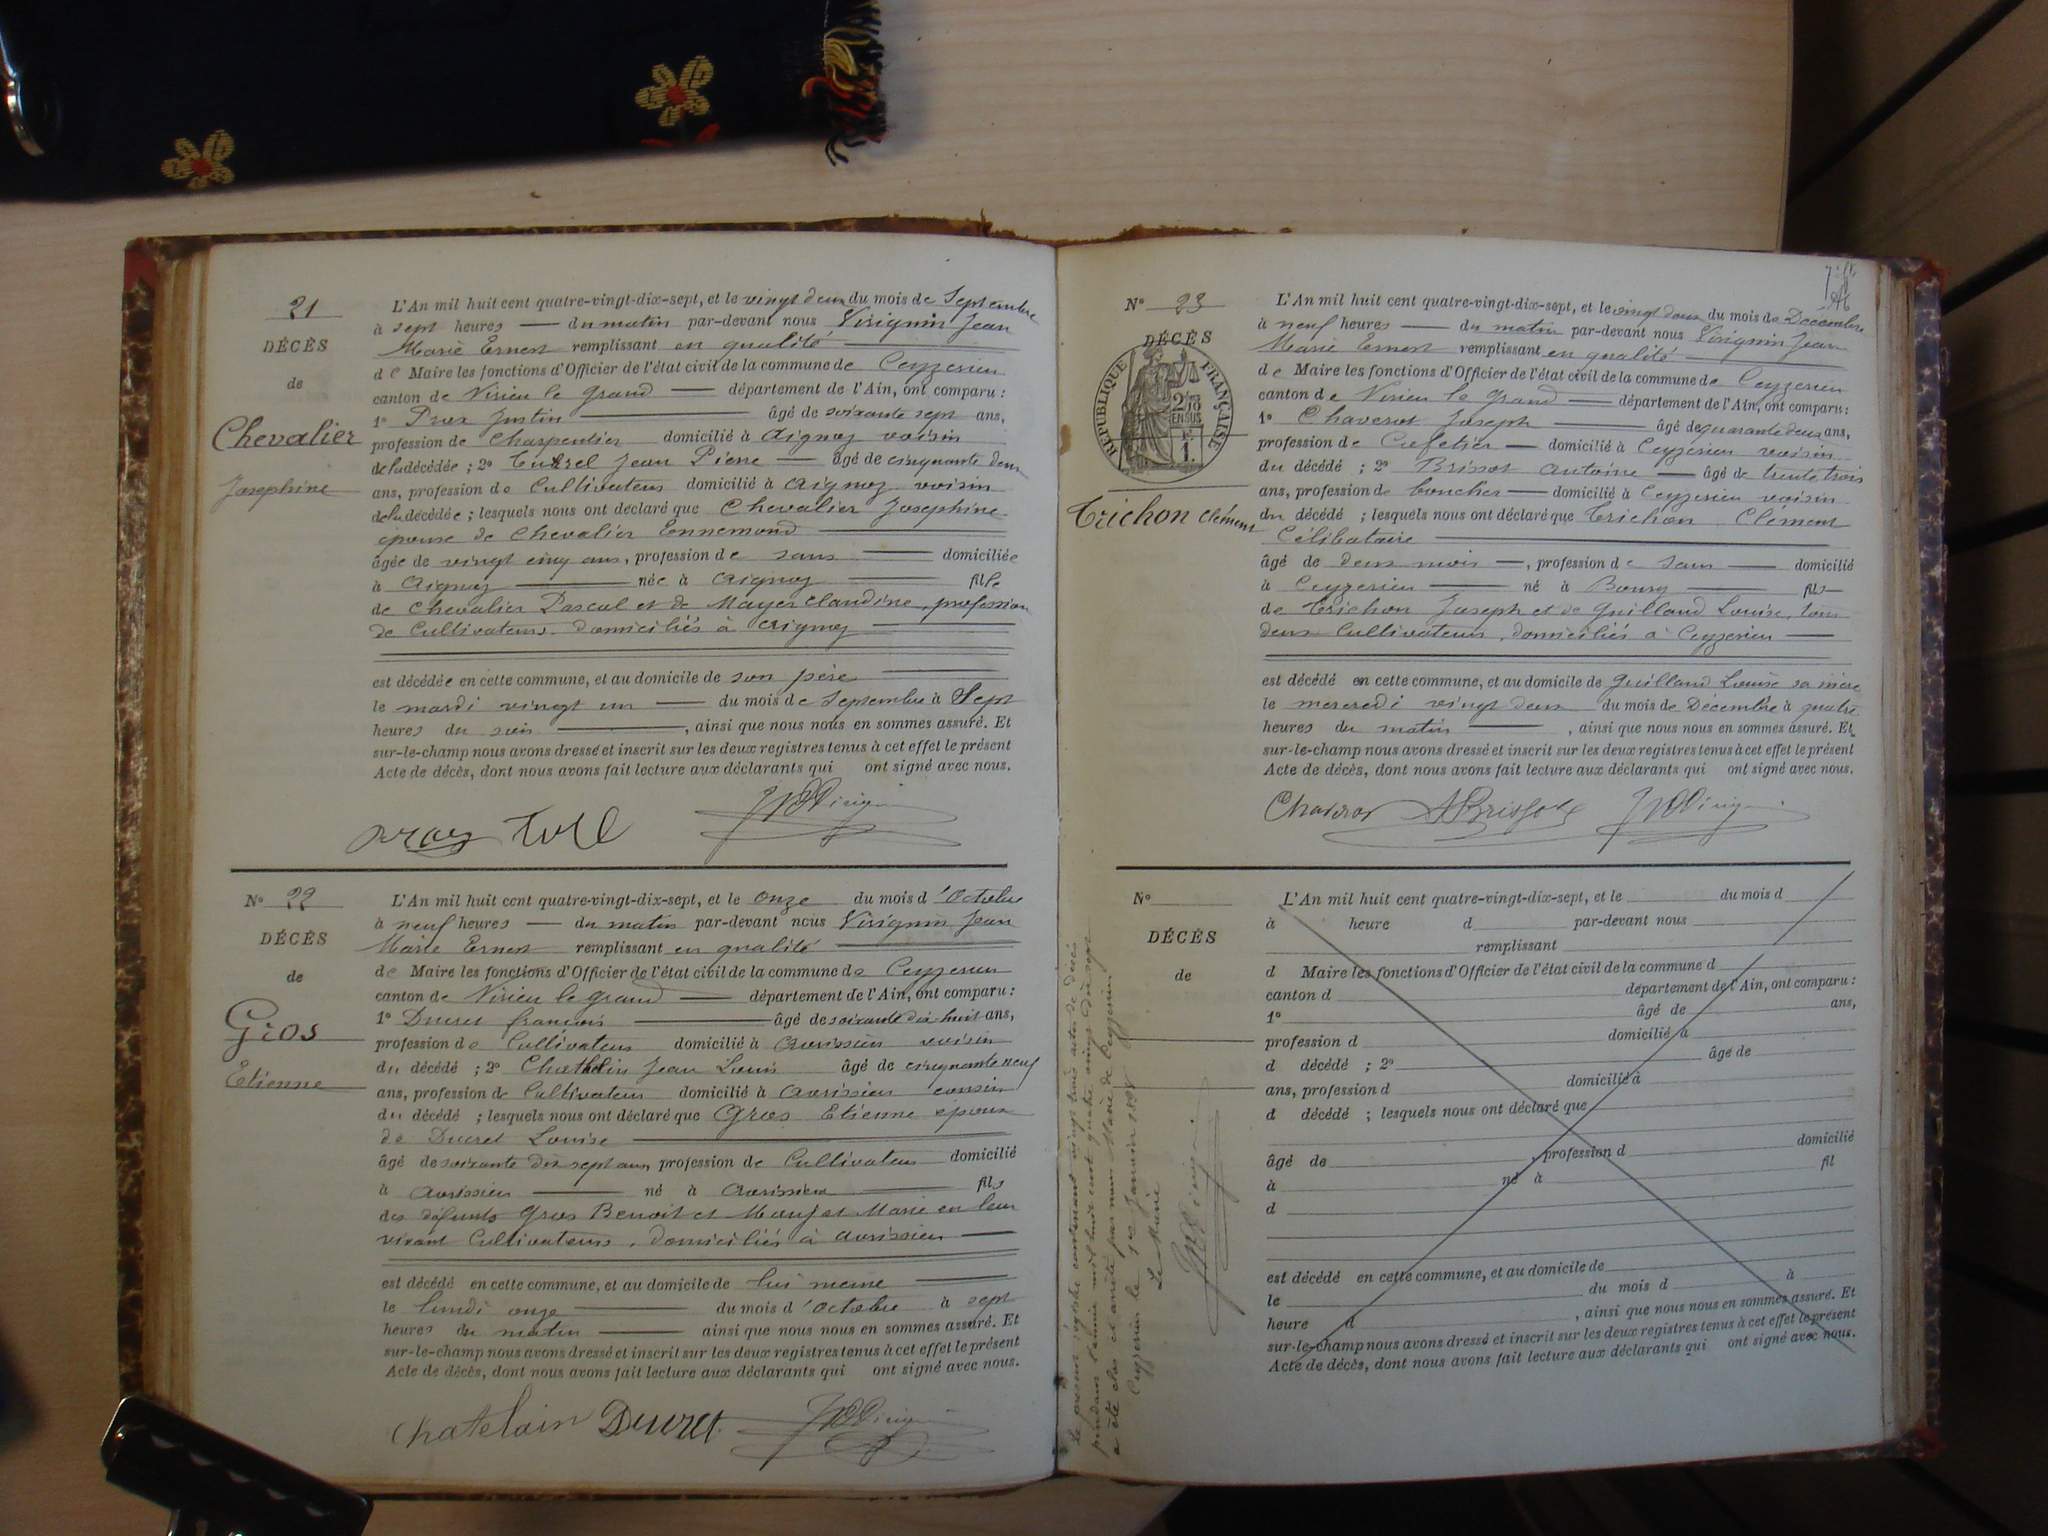 21
DÉCÈS
de
Chevalier
Josephine
L'An mil huit cent quatre-vingt-dix-sept, et le vingt deux du mois de Septembre
à sept heures du matin par-devant nous Virignin Jean
Marie Ernest remplissant en qualité
de Maire les fonctions d'Officier de l'état civil de la commune de Ceyzerieu
canton de Virieu le Grand département de l'Ain, ont comparu :
1° Justin âgé de soixante sept ans,
profession de Charpentier domicilié à Aignoz voisin
de la décédée ; 2° Jean Pierre âgé de cinquante deux
ans, profession de Cultivateur domicilié à Aignoz voisin
de la décédée ; lesquels nous ont déclaré que Chevalier Josephine
épouse de Chevalier Ennemond
âgée de vingt cinq ans, profession de sans domiciliée
à Aignoz née à Aignoz fille
de Chevalier Pascal et de Mayer Claudine, profession
de Cultivateurs domiciliés à Aignoz
est décédée en cette commune, et au domicile de son père
le mardi vingt un du mois de Septembre à Sept
heures du soir, ainsi que nous nous en sommes assuré. Et
sur-le-champ nous avons dressé et inscrit sur les deux registres tenus à cet effet le présent
Acte de décès, dont nous avons fait lecture aux déclarants qui ont signé avec nous.
N° 22
DÉCÈS
de
Gros
Etienne
L'An mil huit cent quatre-vingt-dix-sept, et le onze du mois d'Octobre
à neuf heures du matin par-devant nous Virignin Jean
Marie Ernest remplissant en qualité
de Maire les fonctions d'Officier de l'état civil de la commune de Ceyzerieu
canton de Virieu le grand département de l'Ain, ont comparu :
1° Ducret françois âgé de soixante dix huit ans,
profession de Cultivateur domicilié à Avrissieu voisin
du décédé ; 2° Jean Louis âgé de cinquante neuf
ans, profession de Cultivateur domicilié à Avrissieu cousin
du décédé ; lesquels nous ont déclaré que Gros Etienne époux
de Ducret Louise
âgé de soixante dix sept ans, profession de Cultivateur domicilié
à Avrissieu né à Avrissieu fils
des défunts Gros Benoit et Marie en leur
vivant Cultivateurs, domiciliés à Avrissieu
est décédé en cette commune, et au domicile de lui meme
le lundi onze du mois d'Octobre à sept
heures du matin ainsi que nous nous en sommes assuré. Et
sur-le-champ nous avons dressé et inscrit sur les deux registres tenus à cet effet le présent
Acte de décès, dont nous avons fait lecture aux déclarants qui ont signé avec nous.
Chatelain Ducret
N° 23
DÉCÈS
RÉPUBLIQUE FRANÇAISE
2/10 EN SUS
1.
Trichon Clément
L'An mil huit cent quatre-vingt-dix-sept, et le vingt deux du mois de Décembre
à neuf heures du matin par-devant nous Virignin Jean
Marie Ernest remplissant en qualité
de Maire les fonctions d'Officier de l'état civil de la commune de Ceyzerieu
canton de Virieu le Grand département de l'Ain, ont comparu :
1° Chaverot Joseph âgé de quarante deux ans,
profession de Cafetier domicilié à Ceyzerieu voisin
du décédé ; 2° Brissot Antoine âgé de trente trois
ans, profession de boucher domicilié à Ceyzerieu voisin
du décédé ; lesquels nous ont déclaré que Trichon Clément
Célibataire
âgé de deux mois, profession de sans domicilié
à Ceyzerieu né à Bourg fils
de Trichon Joseph et de Guilland Louise, tous
deux Cultivateurs, domiciliés à Ceyzerieu
est décédé en cette commune, et au domicile de Guilland Louise sa mère
le mercredi vingt deux du mois de Décembre à quatre
heures du matin, ainsi que nous nous en sommes assuré. Et
sur-le-champ nous avons dressé et inscrit sur les deux registres tenus à cet effet le présent
Acte de décès, dont nous avons fait lecture aux déclarants qui ont signé avec nous.
ABrissot
Le présent registre contenant vingt trois actes de décès
pendant l'année mil huit cent quatre vingt dix sept
a été clos et arrêté par nous Maire de Ceyzerieu
Ceyzerieu le 1er Janvier 1898
Le Maire
N°
DÉCÈS
de
L'An mil huit cent quatre-vingt-dix-sept, et le du mois d
à heure d par-devant nous
remplissant
d Maire les fonctions d'Officier de l'état civil de la commune d
canton d département de l'Ain, ont comparu :
1° âgé de ans,
profession d domicilié à
d décédé ; 2° âgé de
ans, profession d domicilié à
d décédé ; lesquels nous ont déclaré que
âgé de , profession d domicilié
à né à fil
d
est décédé en cette commune, et au domicile de
le du mois d à
heure d , ainsi que nous nous en sommes assuré. Et
sur-le-champ nous avons dressé et inscrit sur les deux registres tenus à cet effet le présent
Acte de décès, dont nous avons fait lecture aux déclarants qui ont signé avec nous.